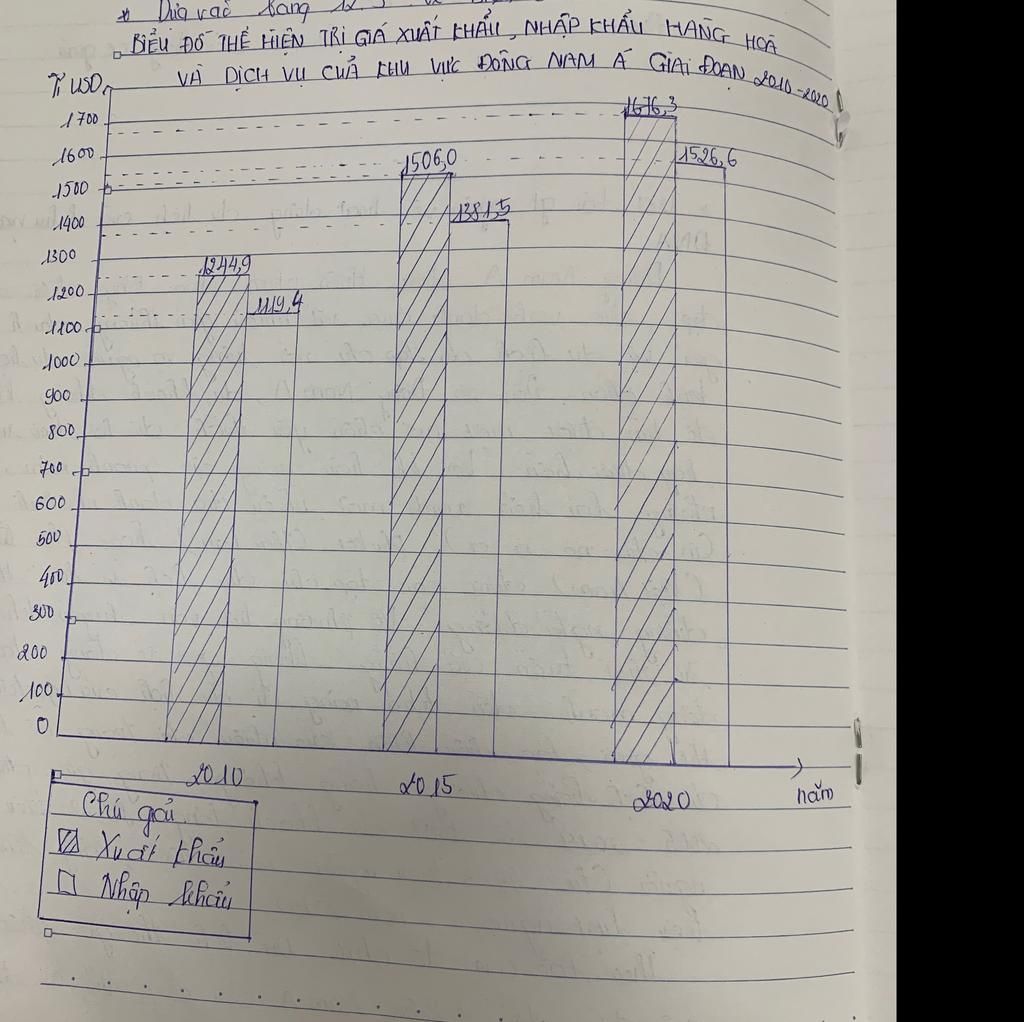 * Dựa vào bảng 12.
BIỂU ĐỒ THỂ HIỆN TRỊ GIÁ XUẤT KHẨU, NHẬP KHẨU HÀNG HOÁ
VÀ DỊCH VỤ CUẢ KHU VỰC ĐÔNG NAM Á GIAI ĐOẠN 2010-2020
Tỉ USD
1700
1600
1500
1400
1300
1200
1100
1000
900
800
700
600
500
400
300
200
100
0
1244,9
1119,4
1506,0
1381,5
1676,3
1526,6
2010
2015
2020
năm
Chú giải
Xuất khẩu
Nhập khẩu